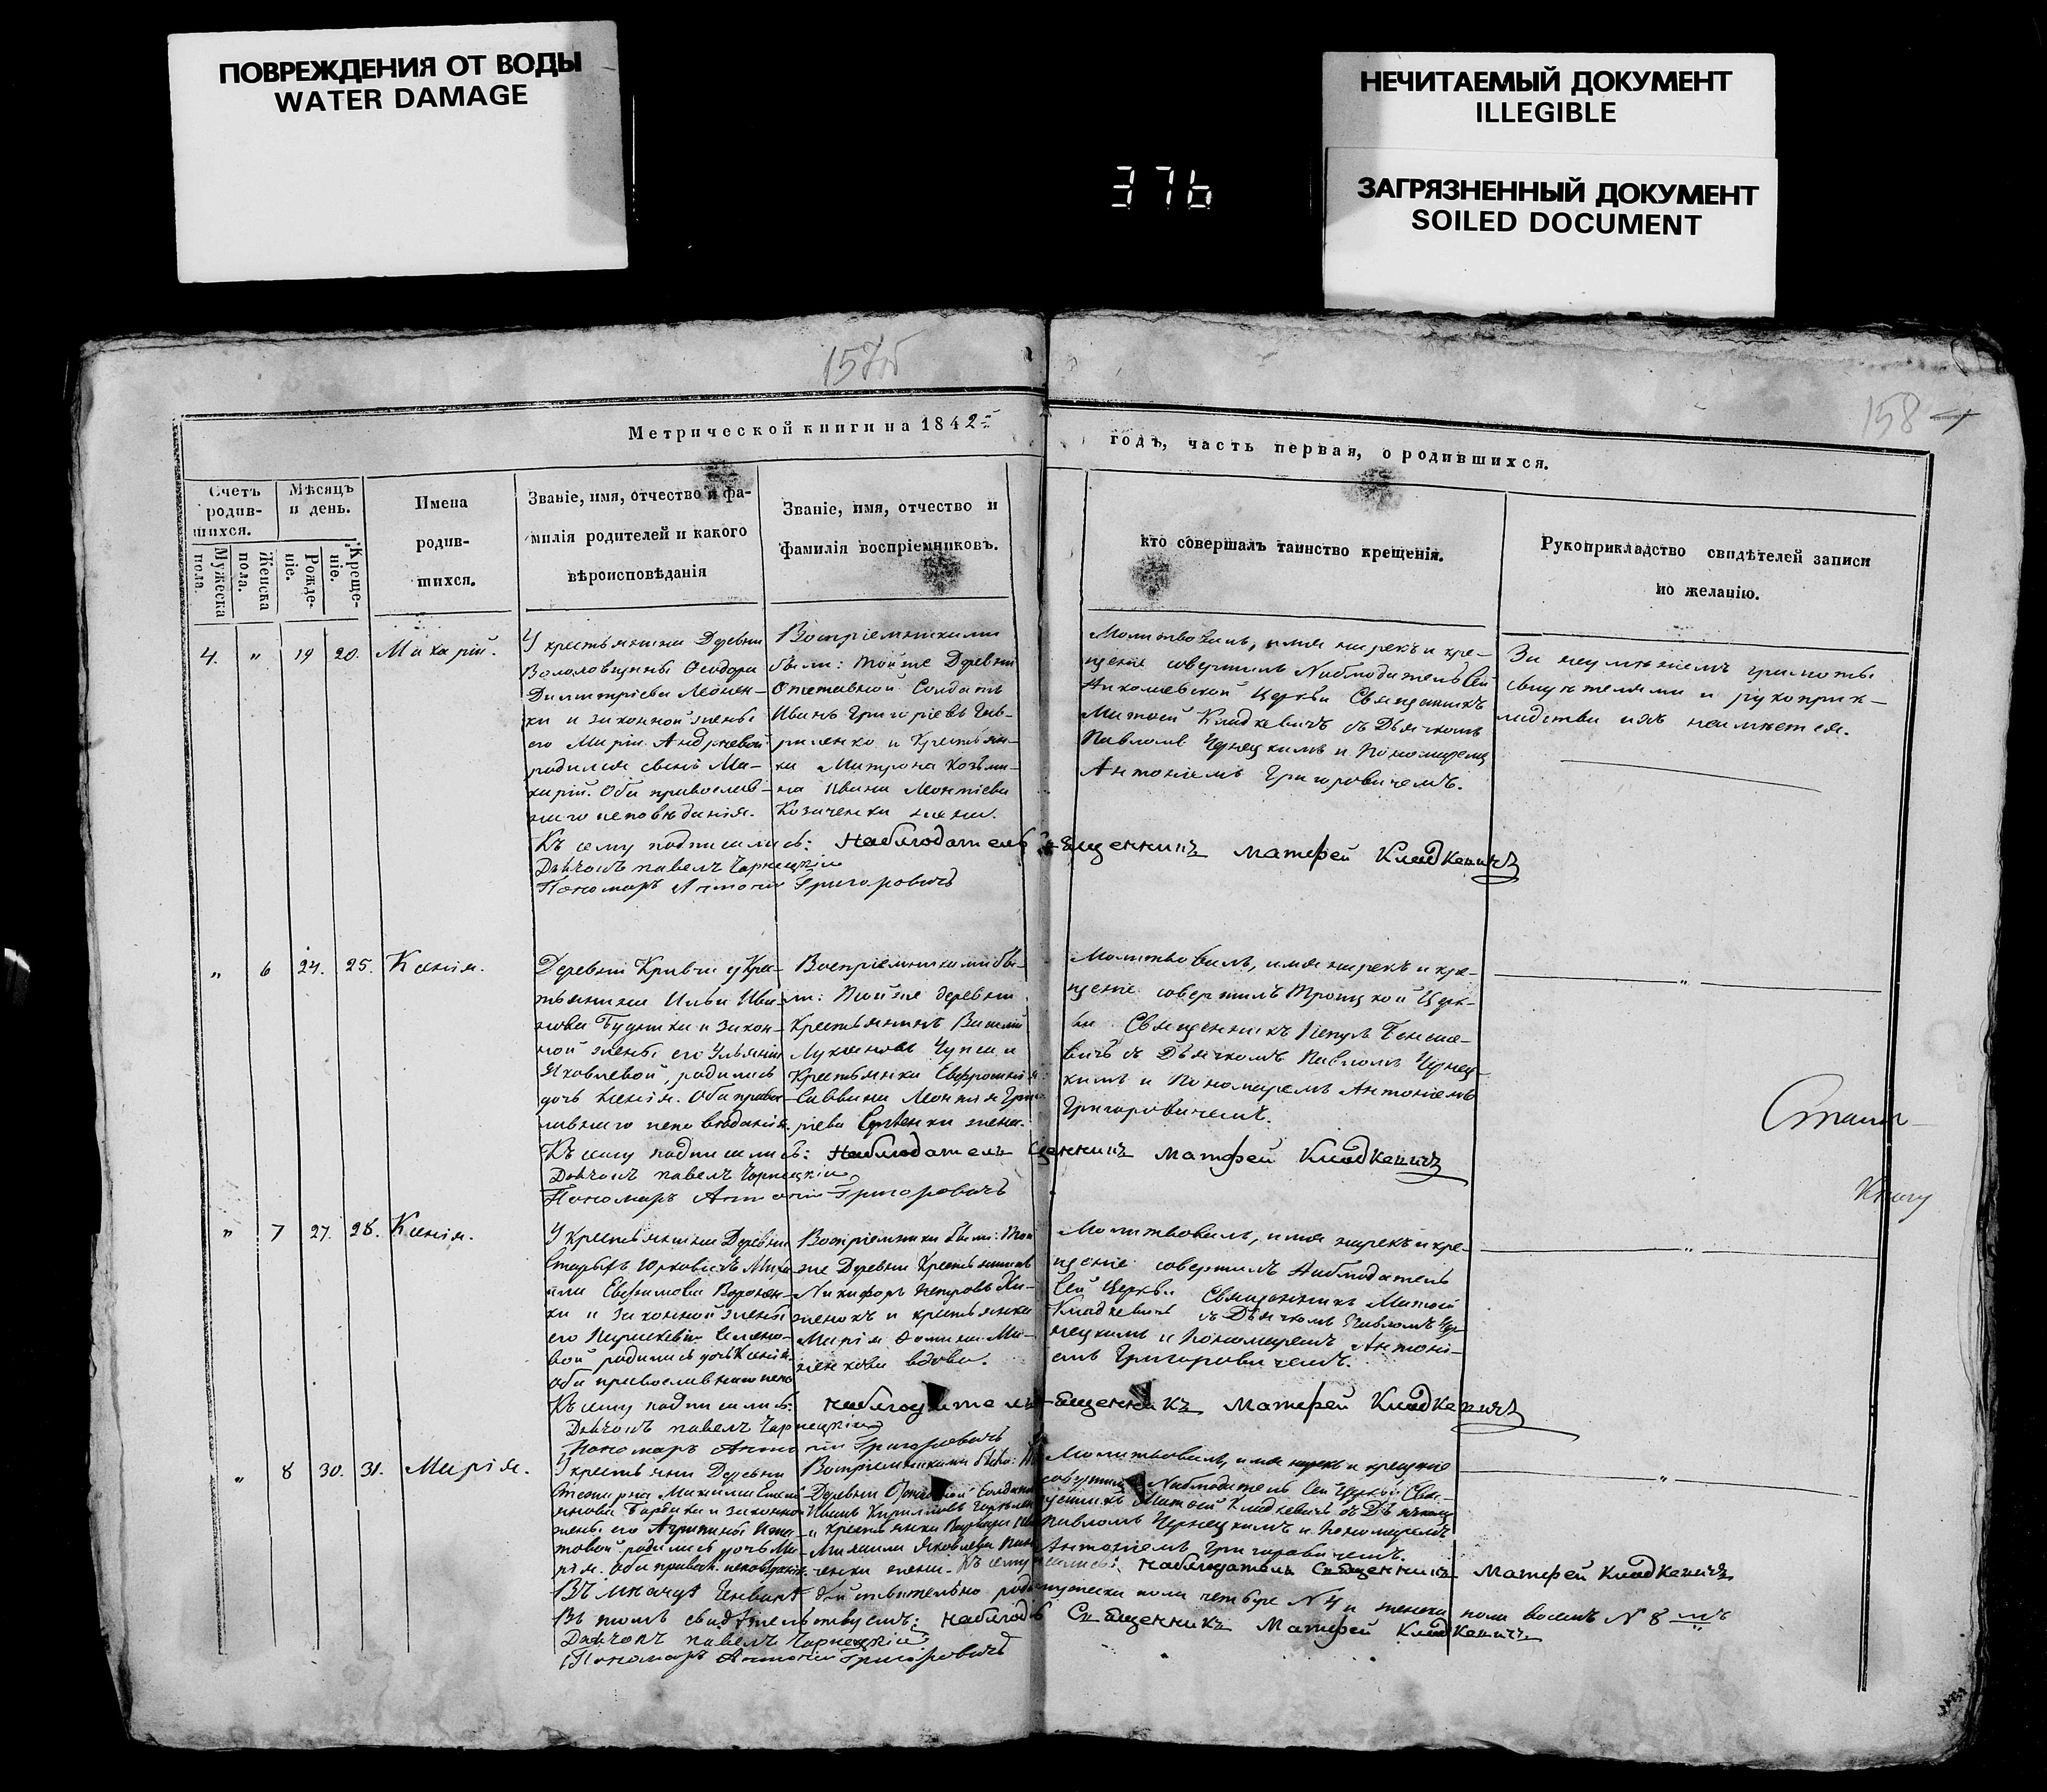 ПОВРЕЖДЕНИЯ ОТ ВОДЫ
WATER DAMAGE
НЕЧИТАЕМЫЙ ДОКУМЕНТ
ILLEGIBLE
ЗАГРЯЗНЕННЫЙ ДОКУМЕНТ
SOILED DOCUMENT
376
157об
158
Метрической книги на 1842й
годъ, часть первая, о родившихся.
Счетъ
родив-
шихся.
Мужеска
пола.
Женска
пола.
Мѣсяцъ
и день.
Рожде-
ніе.
Креще-
ніе.
Имена
родив-
шихся.
Званіе, имя, отчество и фа-
милія родителей и какого
вѣроисповѣданія
Званіе, имя, отчество и
фамилія воспріемниковъ.
кто совершалъ таинство крещенія.
Рукоприкладство свидѣтелей записи
по желанію.
4. " 19 20. Макарій.
У крестьянина Деревни
Ѳеодора
Димитріева Леонен-
ки и законной жены
его Маріи Андреевой
родился сынъ Ма-
карій. Оба православ-
наго исповѣданія.
Воспріемниками
были: тойже Деревни
Отставной Солдатъ
Иванъ Григоріевъ Гав-
риленко и Крестьян-
ка Матрона Козьми-
на Ивана Леонтіева
Козаченки жена.
Молитвовалъ, имя нарекъ и кре-
щеніе совершилъ Наблюдатель сей
Николаевской Церкви Священникъ
Матѳей Кладкевичъ съ Дьячкомъ
Павломъ Чернецкимъ и Пономаремъ
Антоніемъ Григоровичемъ.
За неумѣніемъ грамоты
свидѣтелями и рукоприк-
ладства ихъ неимѣется.
Къ сему подписались: Наблюдатель Священникъ Матфей Кладкевичъ
Дьячокъ павелъ Чарнецкій
Пономаръ Антоній Григоровичъ
" 6 24. 25. Ксенія.
Деревни Кривчи у Кре-
стьянина Ильи Ива-
нова Будника и закон-
ной жены его Ульяніи
Яковлевой, родилась
дочь Ксенія. Оба право-
славнаго исповѣданія.
Воспріемниками бы-
ли: тойже деревни
Крестьянинъ Василій
Лукяновъ и
Крестьянка Евфросинія
Саввина Леонтія Гри-
ріева жена.
Молитвовалъ, имя нарекъ и кре-
щеніе совершилъ Троицкой Церк-
ви Священникъ
съ Дьячкомъ Павломъ Чернец-
кимъ и Пономаремъ Антоніемъ
Григоровичемъ.
"
Къ сему подписались: Наблюдатель Священникъ Матфей Кладкевичъ
Дьячокъ павелъ Чарнецкій
Пономаръ Антоній Григоровичъ
Книгу
" 7 27. 28. Ксенія.
У Крестьянина Деревни
Старыхъ Юрковичъ Миха-
ила Евфимова Воронен-
ки и законной жены
его Параскевіи Семено-
вой родилась дочь Ксенія.
Оба православнаго испо
Воспріемники были: той
же Деревни Крестьянинъ
Никифоръ Петровъ
и крестьянка
Марія Ѳомина
вдова.
Молитвовалъ, имя нарекъ и кре-
щеніе совершилъ Наблюдатель
Сей Церкви Священникъ Матѳей
Кладкевичъ съ Дьячкомъ Павломъ Чер-
нецкимъ и Пономаремъ Антоні-
емъ Григоровичемъ.
"
Къ сему подписались: Наблюдатель Священникъ Матфей Кладкевичъ
Дьячокъ павелъ Чарнецкій
Пономаръ Антоній Григоровичъ
" 8 30. 31. Марія.
У крестьяни Деревни
Михаила
и законной
жены его Агрипины
родилась дочь Ма-
рія. Оба правосл. исповѣданія.
Воспріемниками были:
Деревни Отставной Солдатъ
Иванъ Кириловъ
и крестьянка Варвара
Михаила Яковлева
жена.
Молитвовалъ, имя нарекъ и крещеніе
совершилъ Наблюдатель Сей Церкви Свя-
щенникъ Матѳей Кладкевичъ съ Дьячкомъ
Павломъ Чернецкимъ и Пономаремъ
Антоніемъ Григоровичемъ.
"
Къ сему подписались: Наблюдатель Священникъ Матфей Кладкевичъ
Въ мѣсяцѣ Генварѣ дѣйствительно мужеска пола четыре N 4 и женска пола восемь N 8
Въ томъ свидѣтельствуемъ: Наблюд Священникъ Матфей Кладкевичъ
Дьячокъ павелъ Чарнецкій
Пономаръ Антоній Григоровичъ